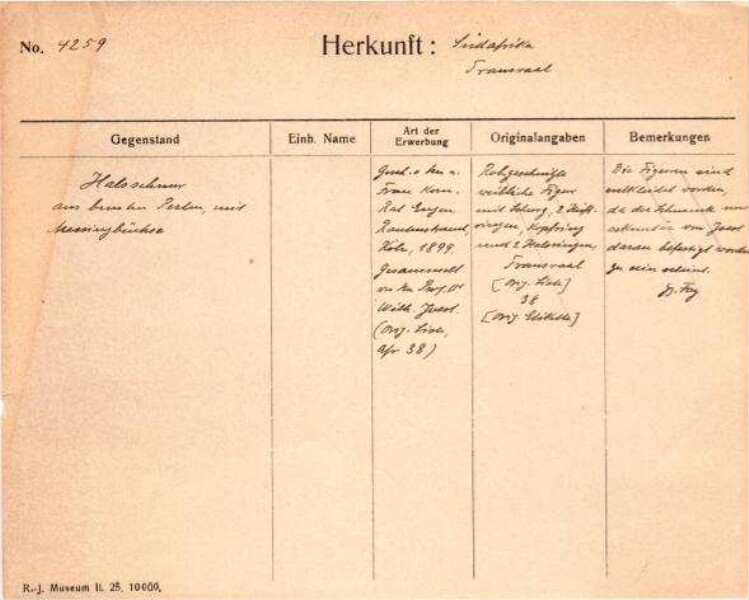 No. 4259
Herkunft: Südafrika
Transvaal
Gegenstand
Einh. Name
Art der Erwerbung
Originalangaben
Bemerkungen
Halsschnur
aus bunten Perlen, mit
Messingbüchse
Gesch. v. Hn u.
Frau Kom.
Rat Eugen
Rautenstrauch,
Köln, 1899.
Gesammelt
v. Hn Prof. Dr
Wilh. Joest.
(Orig. Liste,
Afr 38)
Rohgeschnitzte
weibliche Figur
mit Schurz, 2 Hüft-
ringen, Kopfring
und 2 Halsringen,
Transvaal
[Orig. Liste]
38
[Orig. Etikette]
Die Figuren sind
entkleidet worden,
da der Schmuck nur
sekundär von Joest
daran befestigt worden
zu sein scheint.
Foy
R.-J. Museum II. 25. 10000.